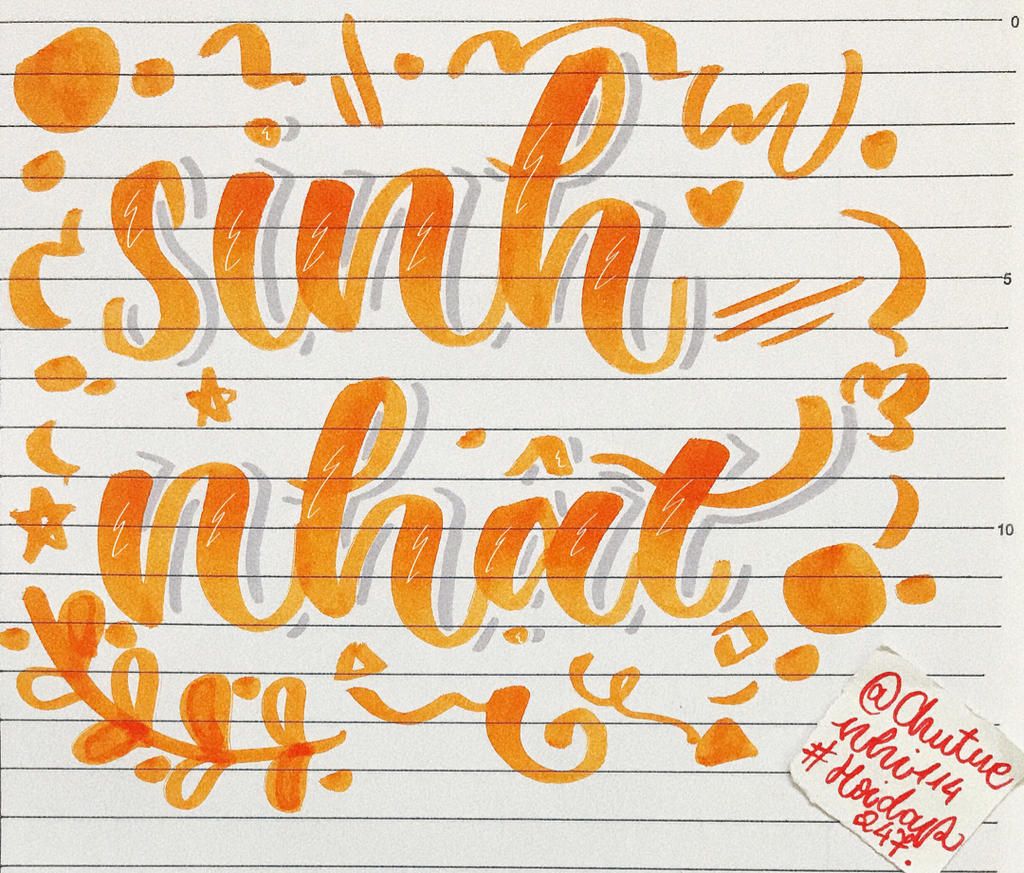 0
sinh
5
nhật
10
@Chutue
nhi114
#Hoidap
247.